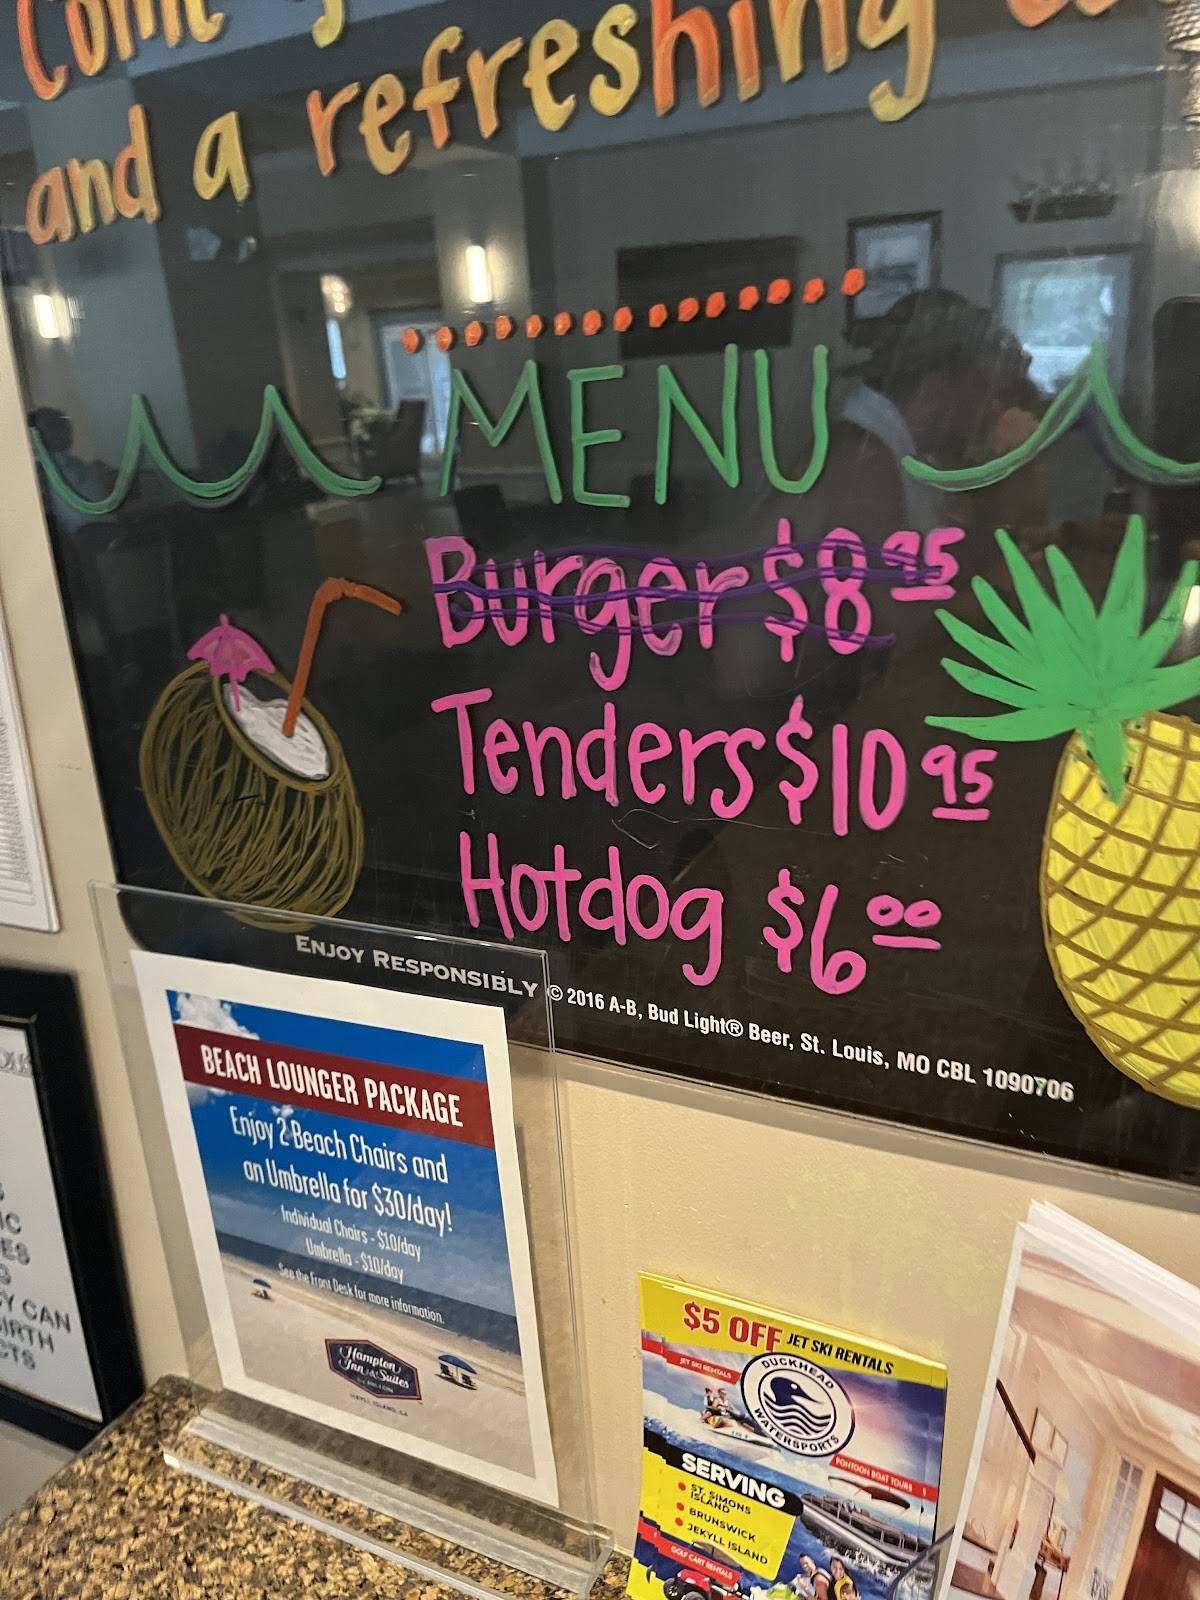 Come
and a refreshing
MENU
Burger $8.95
Tenders $10.95
Hotdog $6.00
ENJOY RESPONSIBLY
© 2016 A-B, Bud Light® Beer, St. Louis, MO CBL 1090706
BEACH LOUNGER PACKAGE
Enjoy 2 Beach Chairs and
an Umbrella for $30/day!
Individual Chairs - $10/day
Umbrella - $10/day
See the Front Desk for more information.
Hampton
Inn & Suites
JEKYLL ISLAND, GA
$5 OFF JET SKI RENTALS
JET SKI RENTALS
DUCKHEAD
WATERSPORTS
PONTOON BOAT TOURS
SERVING
ST. SIMONS
ISLAND
BRUNSWICK
JEKYLL ISLAND
GOLF CART RENTALS
Y CAN
IRTH